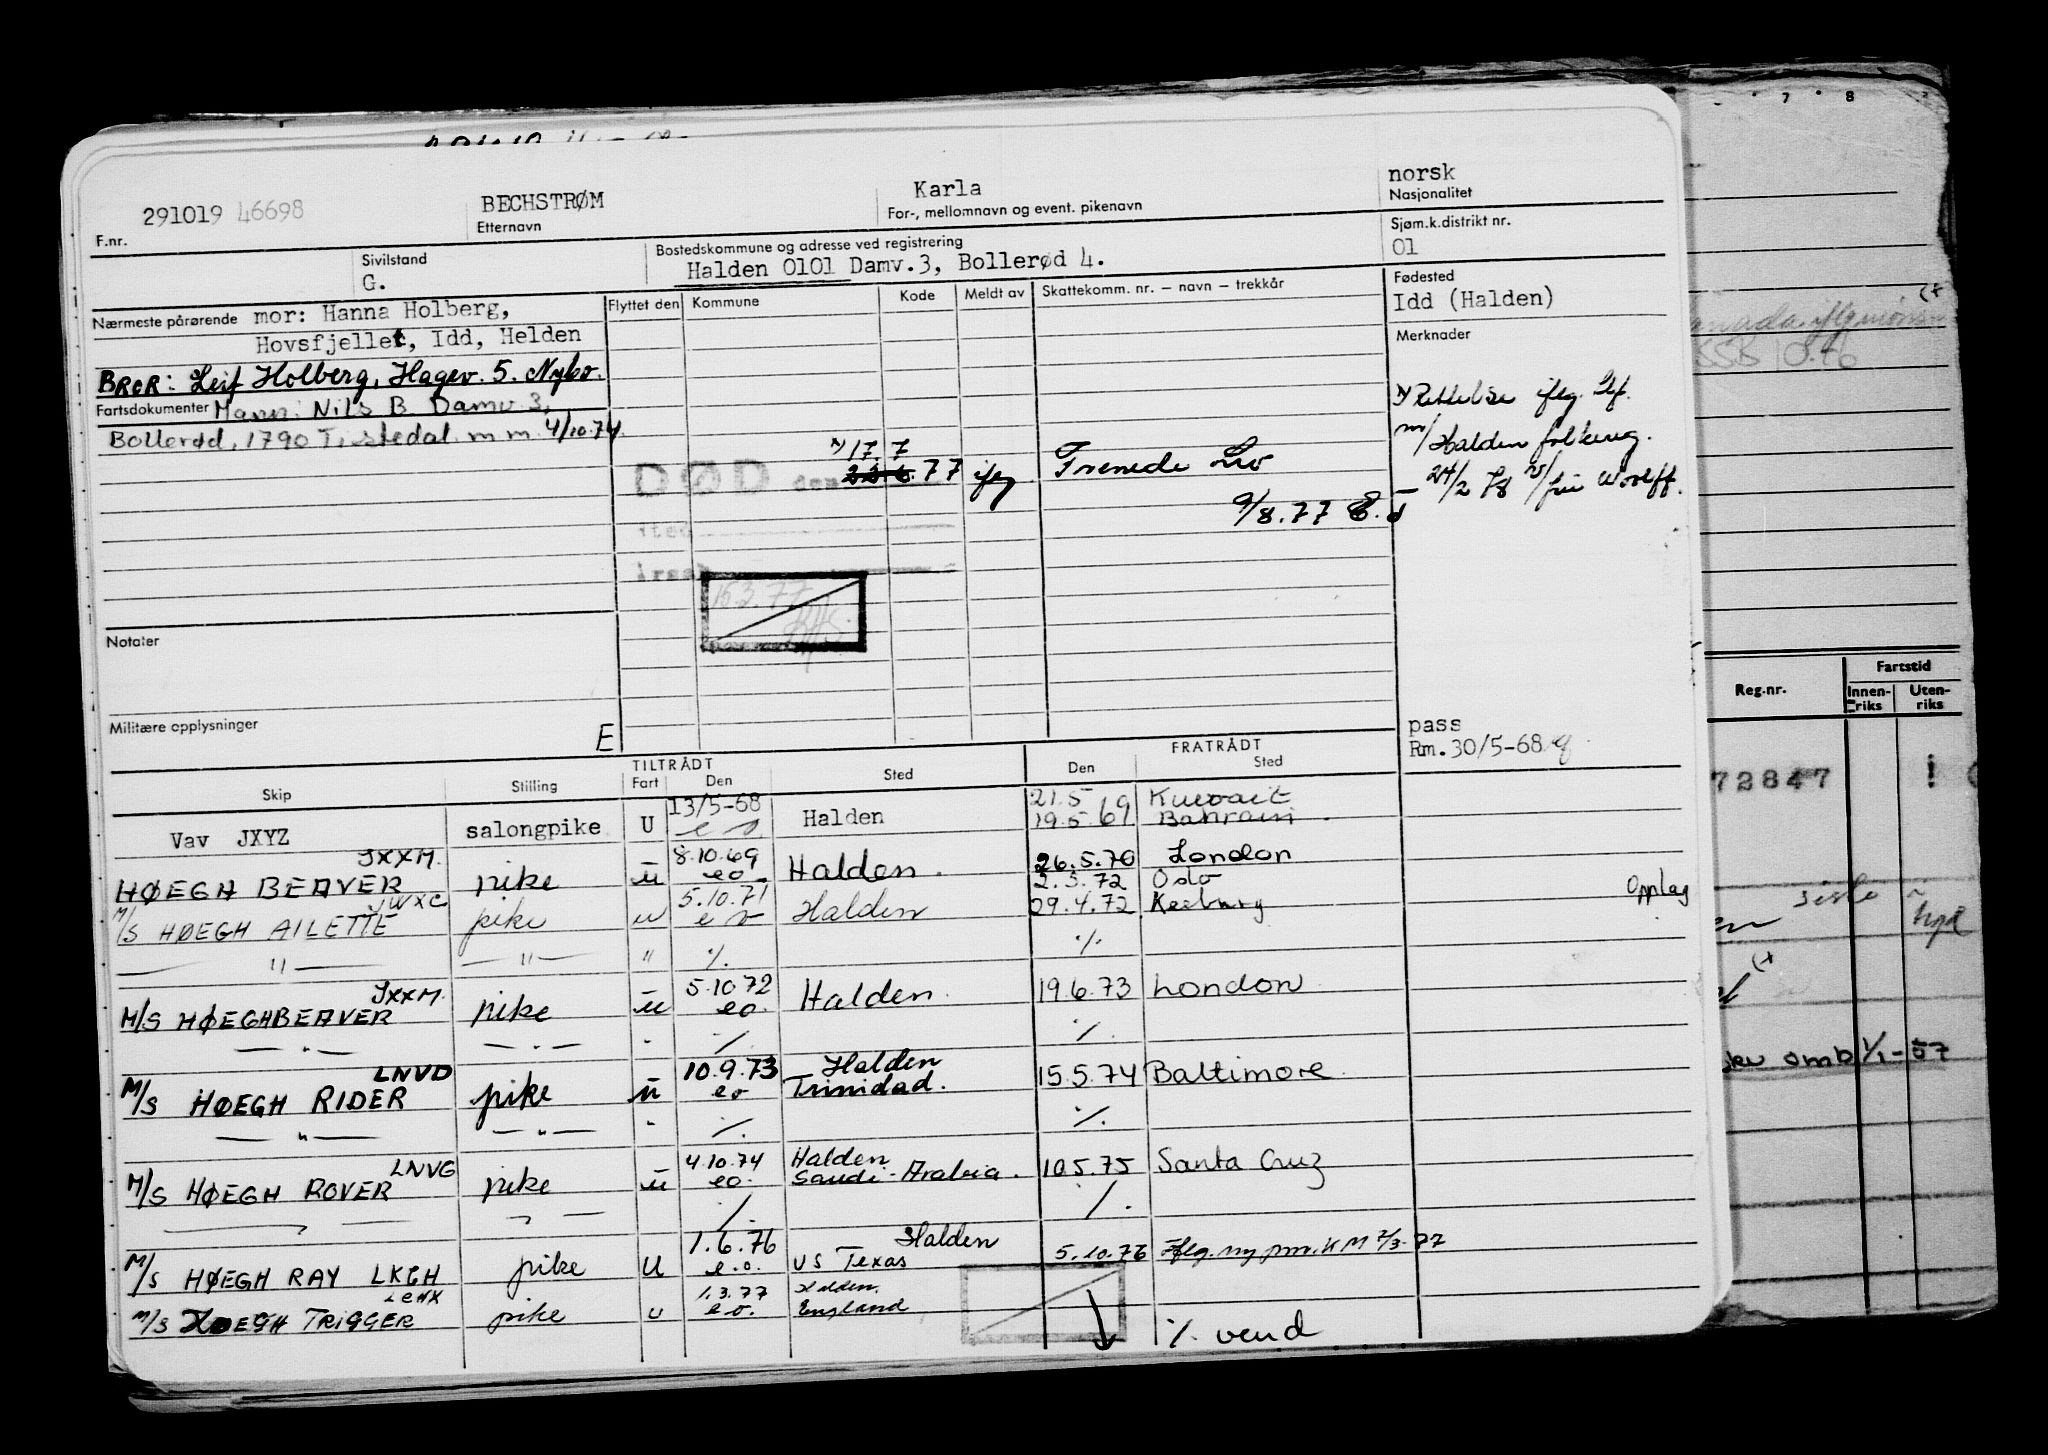 7 8
norsk
291019 46698 BECHSTRØM Karla Nasjonalitet
F.nr. Etternavn For-, mellomnavn og event. pikenavn
Sjøm.k.distrikt nr.
Sivilstand Bostedskommune og adresse ved registrering 01
G. Halden 0101 Damv.3, Bollerød 4.
Fødested
Nærmeste pårørende mor: Hanna Holberg, Flyttet den Kommune Kode Meldt av Skattekomm. nr. — navn — trekkår Idd (Halden)
Hovsfjellet, Idd, Helden Merknader
BROR: Leif Holberg, Hagev. 5. Nybo.
Fartsdokumenter Mann: Nils B. Damv. 3,
Bollerød, 1790 Tistedal. m m. 4/10.74
17.7
DØD den 22.6.77 ifg
9/8.77
m/Halden folkereg.
24/2 78
SSB 10.76
16.3.77
Notater
Militære opplysninger E
pass
Rm. 30/5-68
Reg.nr. Fartstid
Innen-riks Uten-riks
72847
TILTRÅDT FRATRÅDT
Skip Stilling Fart Den Sted Den Sted
Vav JXYZ salongpike U 13/5-68 eo Halden 21.5 19.5.69 Kuwait Bahrain.
HØEGH BEAVER JXXM. pike u 8.10.69 eo Halden. 26.5.70 London
M/S HØEGH AILETTE JWXC pike u 5.10.71 eo Halden 2.3.72 Oslo
29.4.72 Opplag
— " — — " — " ./. ./.
M/S HØEGH BEAVER JXXM. pike u 5.10.72 eo. Halden. 19.6.73 London
— " — — " — " ./. ./.
M/S HØEGH RIDER LNVD pike u 10.9.73 eo Halden Trinidad. 15.5.74 Baltimore.
— " — — " — " ./. ./.
M/S HØEGH ROVER LNVG pike u 4.10.74 eo. Halden Saudi-Arabia. 10.5.75 Santa Cruz
— " — — " — ./. ./.
M/S HØEGH RAY LKGH pike U 1.6.76 e.o. Halden US Texas 5.10.76 Iflg. ny pm. KM 2/3-77
M/S HØEGH TRIGGER pike u 1.3.77 e.o. Halden. England
./. vend
omb 1/1-57